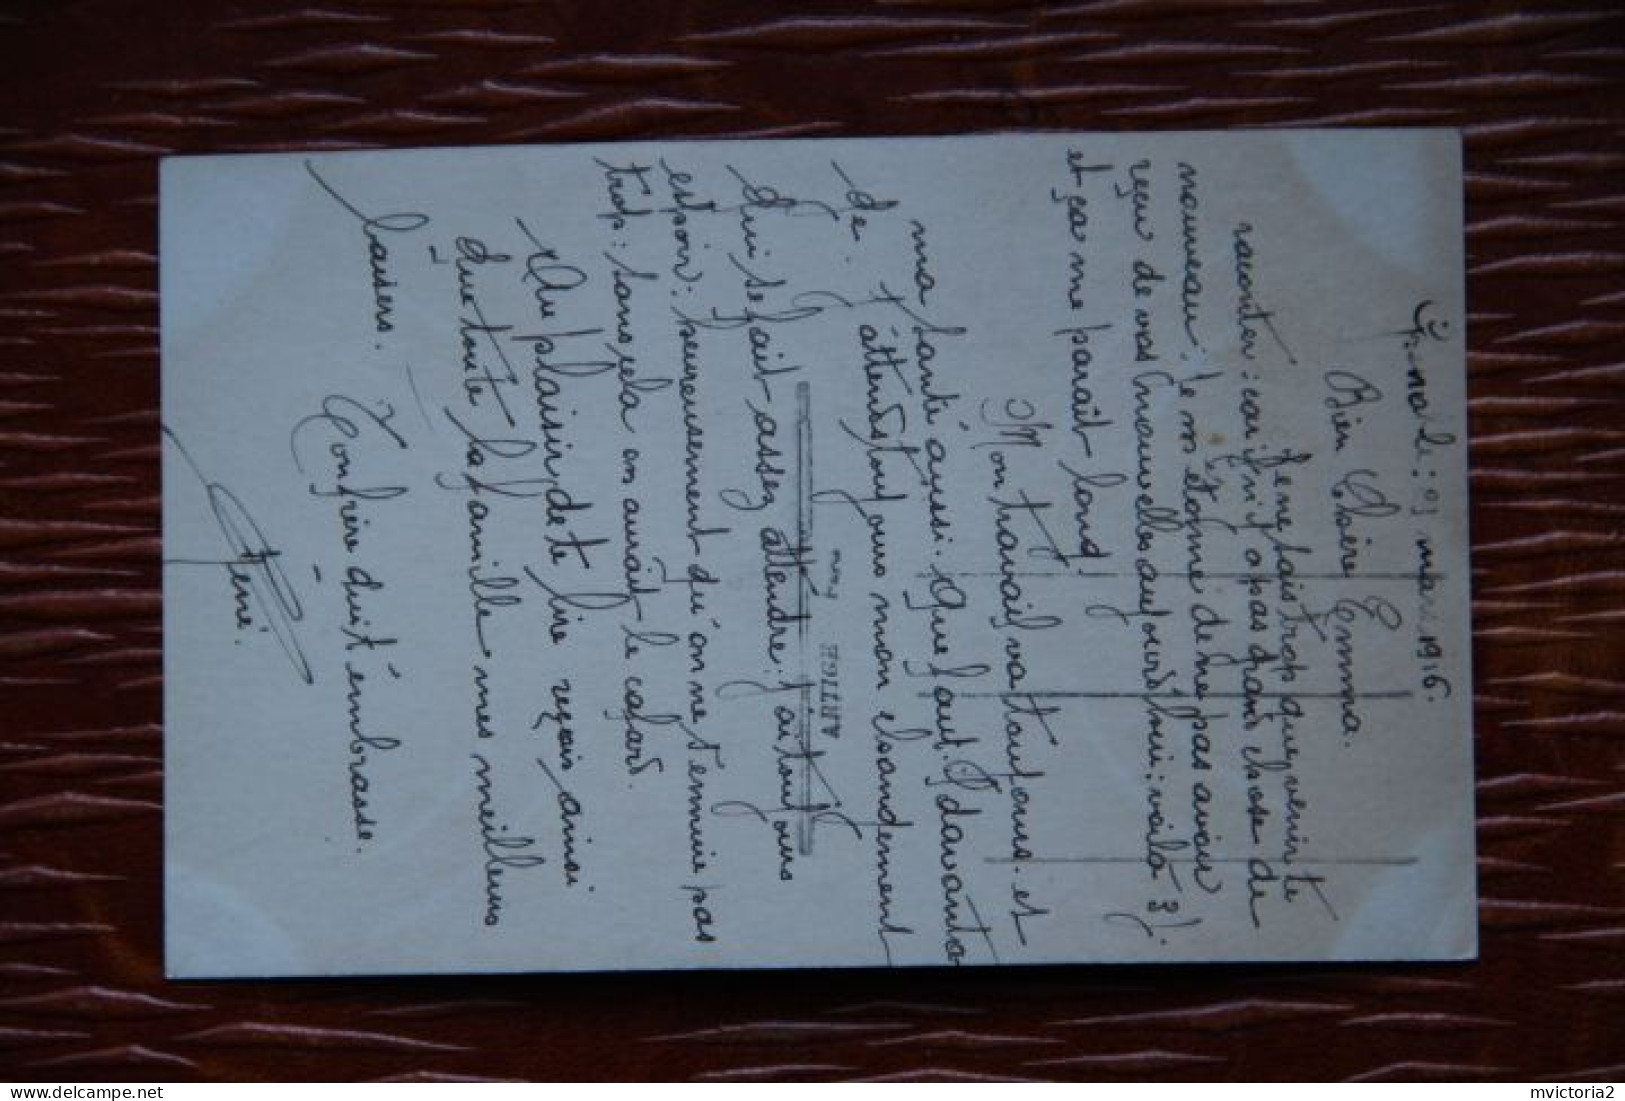 Grenade : 03 mars 1916.
Bien Chère Emma.
Je ne sais trop que venir te
raconter : car il n'y a pas grand chose de
nouveau : Je m'étonne de ne pas avoir
reçu de vos nouvelles aujourd'hui : voilà 3 j.
et ça me parait long !
Mon travail va toujours. et
ma santé aussi. Que faut-il davanta
de.
J'attends toujours mon changement
qui se fait assez attendre : j'ai toujours
espoir : heureusement qu'on ne s'ennuie pas
trop : sans cela on aurait le cafard.
Au plaisir de te lire reçois ainsi
que toute la famille mes meilleurs
baisers.
Ton frère qui t'embrasse.
Réné.
ARTIGE
mvictoria2